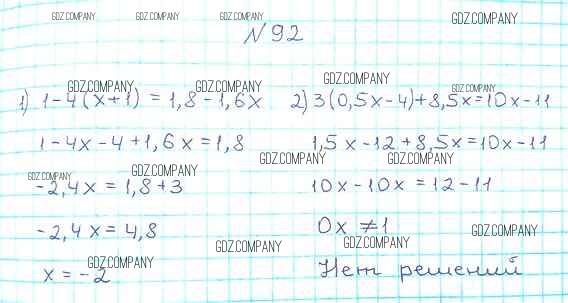 GDZ.COMPANY GDZ.COMPANY GDZ.COMPANY GDZ.COMPANY
№ 92
GDZ.COMPANY GDZ.COMPANY GDZ.COMPANY
1) 1-4(x+1) = 1,8-1,6x 2) 3(0,5x-4)+8,5x=10x-11
GDZ.COMPANY GDZ.COMPANY
1-4x-4+1,6x=1,8 1,5x-12+8,5x=10x-11
GDZ.COMPANY GDZ.COMPANY GDZ.COMPANY GDZ.COMPANY
-2,4x = 1,8+3 10x-10x = 12-11
-2,4x = 4,8 0x ≠ 1
GDZ.COMPANY GDZ.COMPANY GDZ.COMPANY
x = -2 Нет решений
GDZ.COMPANY